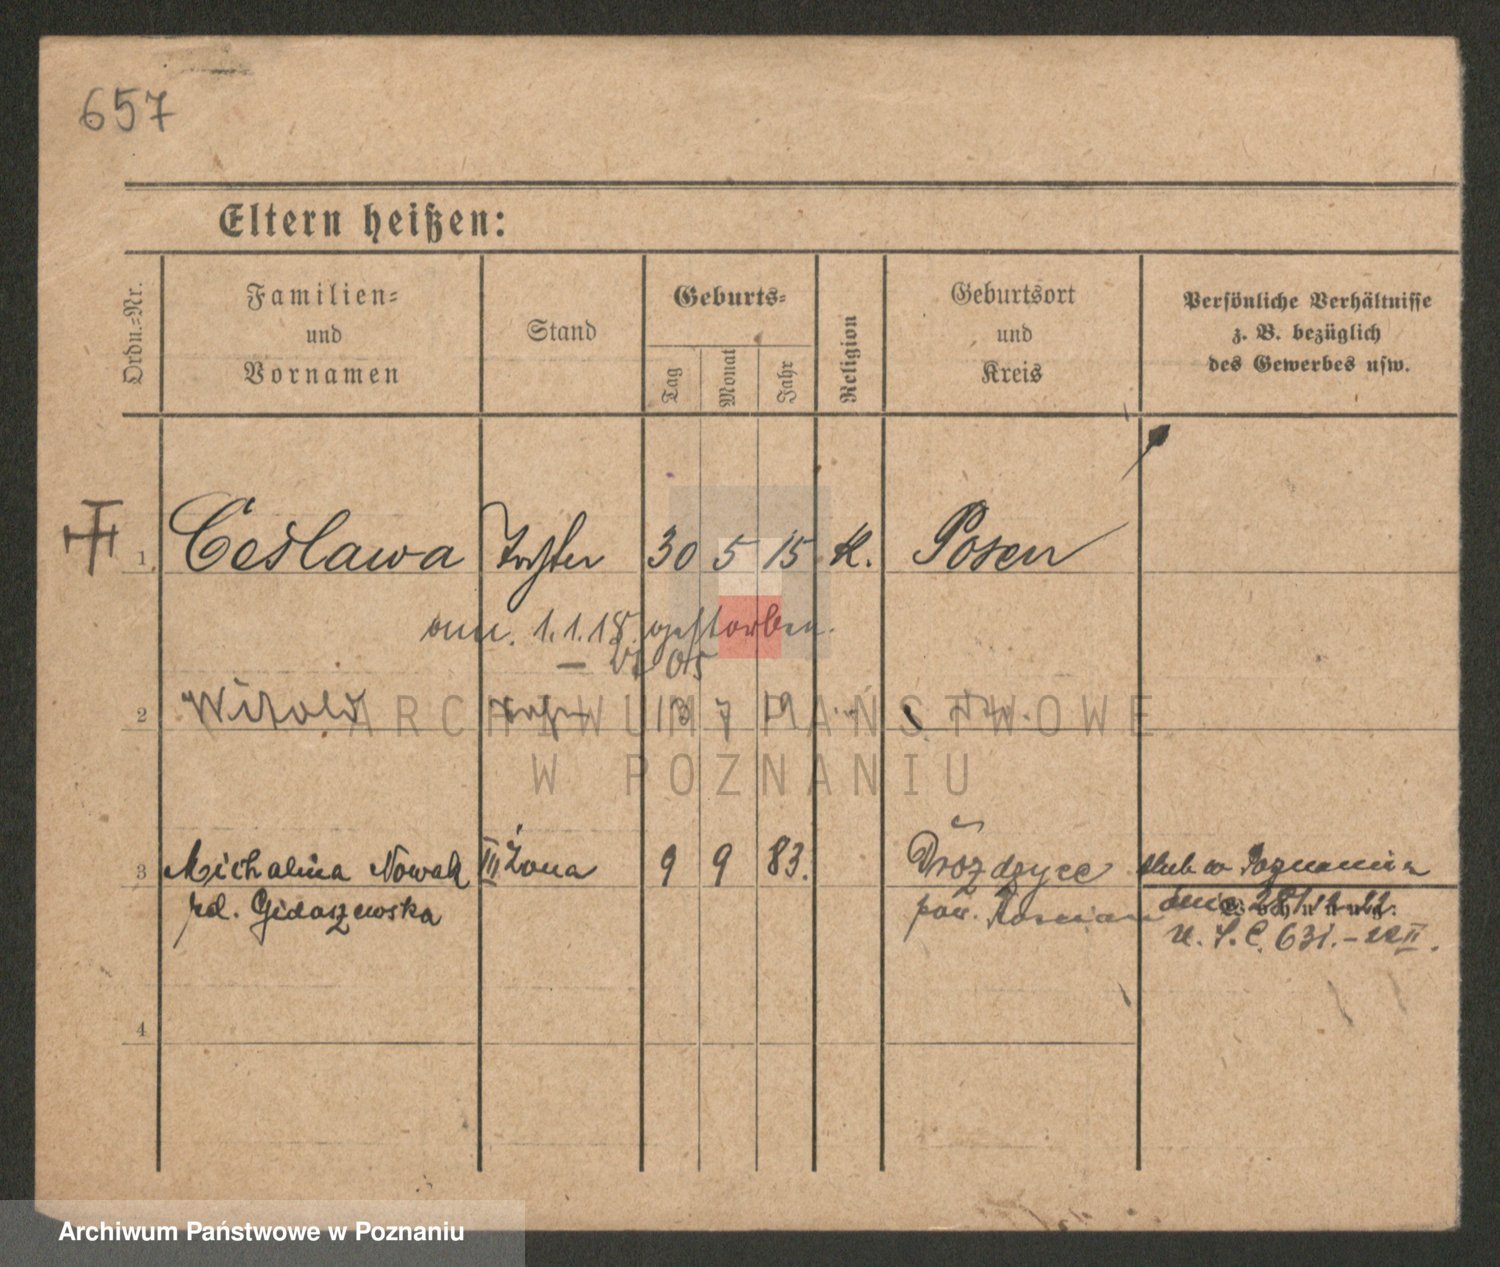 657
Eltern heißen:
Ordn.-Nr.
Familien-
und
Vornamen
Stand
Geburts-
Tag
Monat
Jahr
Religion
Geburtsort
und
Kreis
Persönliche Verhältnisse
z. B. bezüglich
des Gewerbes usw.
1 Ceslawa Tochter 30 5 15 K. Posen
am. 1.1.18. gestorben.
2 Witold 13 7 19
3 Michalina Nowak III Żona 9 9 83. Drozdzyce ślub w Poznaniu
pd. Gidaszewska pow. dnia
Wohnung:
U. S. C. 631.-22 II.
4
ARCHIWUM PAŃSTWOWE
W POZNANIU
Archiwum Państwowe w Poznaniu